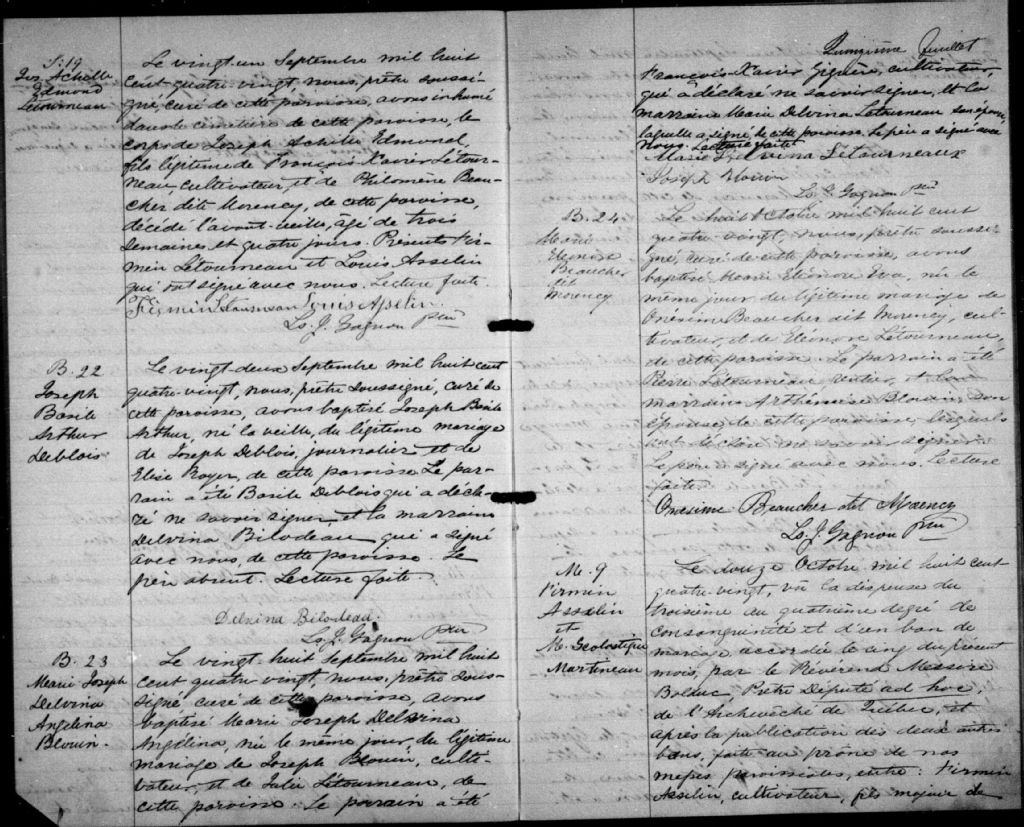 S. 19
Jos. Achille
Edmond
Létourneau
Le vingt-un Septembre mil huit
cent quatre-vingt, nous, prêtre soussi-
gné, curé de cette paroisse, avons inhumé
dans le cimetière de cette paroisse, le
corps de Joseph Achille Edmond,
fils légitime de François Xavier Létour-
neau, cultivateur, et de Philomène Beau-
cher dit Morency, de cette paroisse,
décédé l'avant-veille, âgé de trois
semaines et quatre jours. Présents Fir-
min Létourneau et Louis Asselin
qui ont signé avec nous. Lecture faite.
Firmin Létourneau Louis Asselin
Ls. J. Gagnon Ptre
B. 22
Joseph
Basile
Arthur
Deblois
Le vingt-deux Septembre mil huit cent
quatre-vingt, nous, prêtre soussigné, curé de
cette paroisse, avons baptisé Joseph Basile
Arthur, né la veille, du légitime mariage
de Joseph Deblois, journalier et de
Elise Royer, de cette paroisse. Le par-
rain a été Basile Deblois qui a décla-
ré ne savoir signer et la marraine
Delvina Bilodeau qui a signé
avec nous, de cette paroisse. Le
père absent. Lecture faite.
Delvina Bilodeau.
Ls. J. Gagnon Ptre
B. 23
Marie Joseph
Delvina
Angelina
Blouin.
Le vingt-huit Septembre mil huit
cent quatre-vingt, nous, prêtre sous-
signé curé de cette paroisse, avons
baptisé Marie Joseph Delvina
Angélina, née le même jour, du légitime
mariage de Joseph Blouin, culti-
vateur, et de Julie Létourneau, de
cette paroisse. Le parrain a été
Quinzième feuillet
François-Xavier Giguère, cultivateur,
qui a déclaré ne savoir signer, et la
marraine Marie Delvina Letourneau son épouse,
laquelle a signé, de cette paroisse. Le père a signé avec
nous. Lecture faite.
Marie Delvina Létourneaux
Joseph Blouin
Ls. J. Gagnon Ptre
B. 24
Marie
Eléonore
Beaucher
dit
Morency
Le huit Octobre mil huit cent
quatre-vingt, nous, prêtre soussi-
gné, curé de cette paroisse, avons
baptisé Marie Eléonore Eva, née le
même jour du légitime mariage de
Onésime Beaucher dit Morency, cul-
tivateur, et de Eléonore Létourneau,
de cette paroisse. Le parrain a été
Pierre Létourneau rentier, et la
marraine Arthémise Blouin, son
épouse, de cette paroisse, lesquels
ont déclaré ne savoir signer.
Le père a signé avec nous. Lecture
faite.
Onésime Beaucher dit Morency
Ls. J. Gagnon Ptre
M. 9
Firmin
Asselin
et
M. Scolastique
Martineau
Le douze Octobre mil huit cent
quatre-vingt, vû la dispense du
troisième au quatrième degré de
consanguinité et d'un ban de
mariage accordée le cinq du présent
mois, par le Révérend Messire
Bolduc, Prêtre Député ad hoc,
de l'Archevêché de Québec, et
après la publication des deux autres
bans, faite au prône de nos
messes paroissiales, entre: Firmin
Asselin, cultivateur, fils majeur de